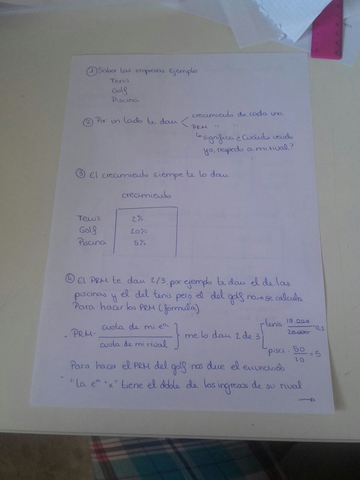 ① Saber las empresas Ejemplo
Tenis
Golf
Piscina
② Por un lado te dan < crecimiento de cada una
PRM " "
↳ significa ¿Cuánto vendo
yo respecto a mi rival?
③ El crecimiento siempre te lo dan
crecimiento
Tenis 2%
Golf 20%
Piscina 5%
El PRM te dan 2/3 por ejemplo te dan el de las
piscinas y el del tenis pero el del golf no → se calcula
Para hacer los PRM (fórmula)
· PRM = cuota de mi eª / cuota de mi rival } me lo dan 2 de 3 [ tenis
pisci = 50/10 = 5
Para hacer el PRM del golf nos dice el enunciado
"La eª "x" tiene el doble de los ingresos de su rival